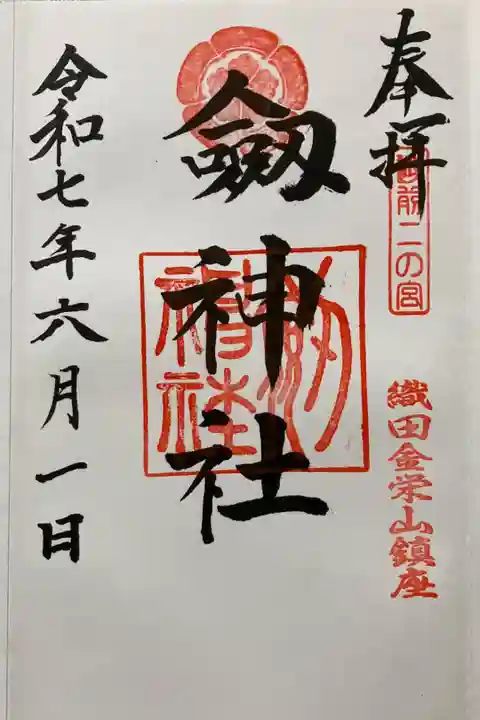 奉拝
越前二の宮
織田金栄山鎮座
劔神社
劔神社
令和七年六月一日